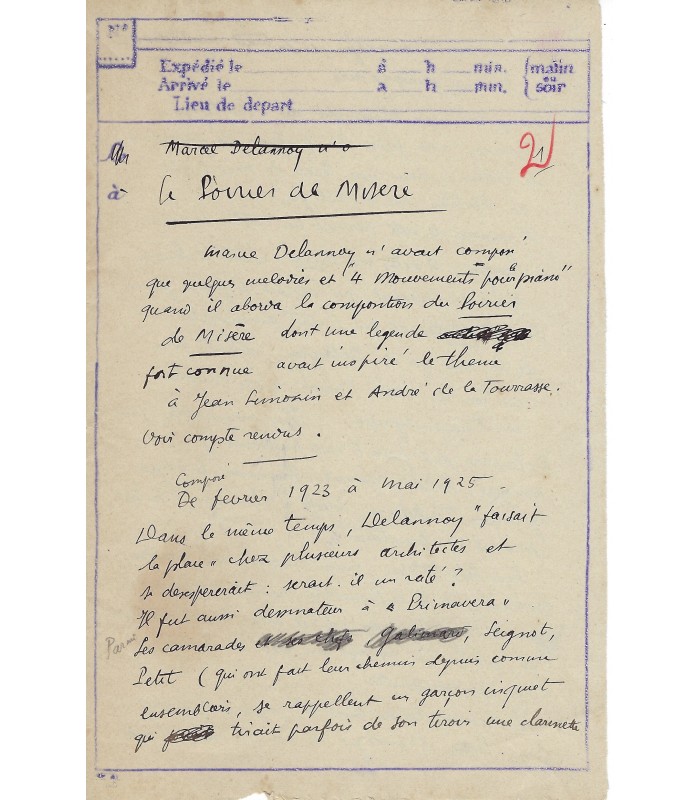 Nº
Expédié le à h min. matin
ou
Arrivé le a h min. soir
Lieu de départ
Marcel Delannoy n'a
21
à
Le Poirier de Misère
Marcel Delannoy n'avait composé
que quelques melodies et "4 Mouvements pour le piano"
quand il aborda la composition du Poirier
de Misère dont une legende
fort connue avait inspiré le theme
à Jean Limosin et André de la Tourrasse.
Voir compte rendus.
Composé
De fevrier 1923 à Mai 1925 -
Dans le même temps, Delannoy "faisait
la place" chez plusieurs architectes et
se desesperait : serait-il un raté ?
Il fut aussi dessinateur à "Primavera"
Parmi
Ses camarades Galimard, Seignot,
Petit (qui ont fait leur chemin depuis comme
ensembliers, se rappellent un garçon inquiet
qui tirait parfois de son tiroir une clarinette